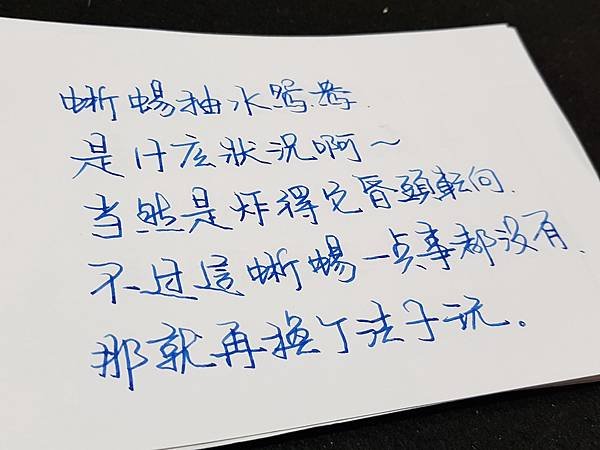 蜥蜴抽水鸳鸯.
是什庅狀況啊～
当然是炸得它昏頭転向.
不过這蜥蜴一点事都没有.
那就再换个法子玩。